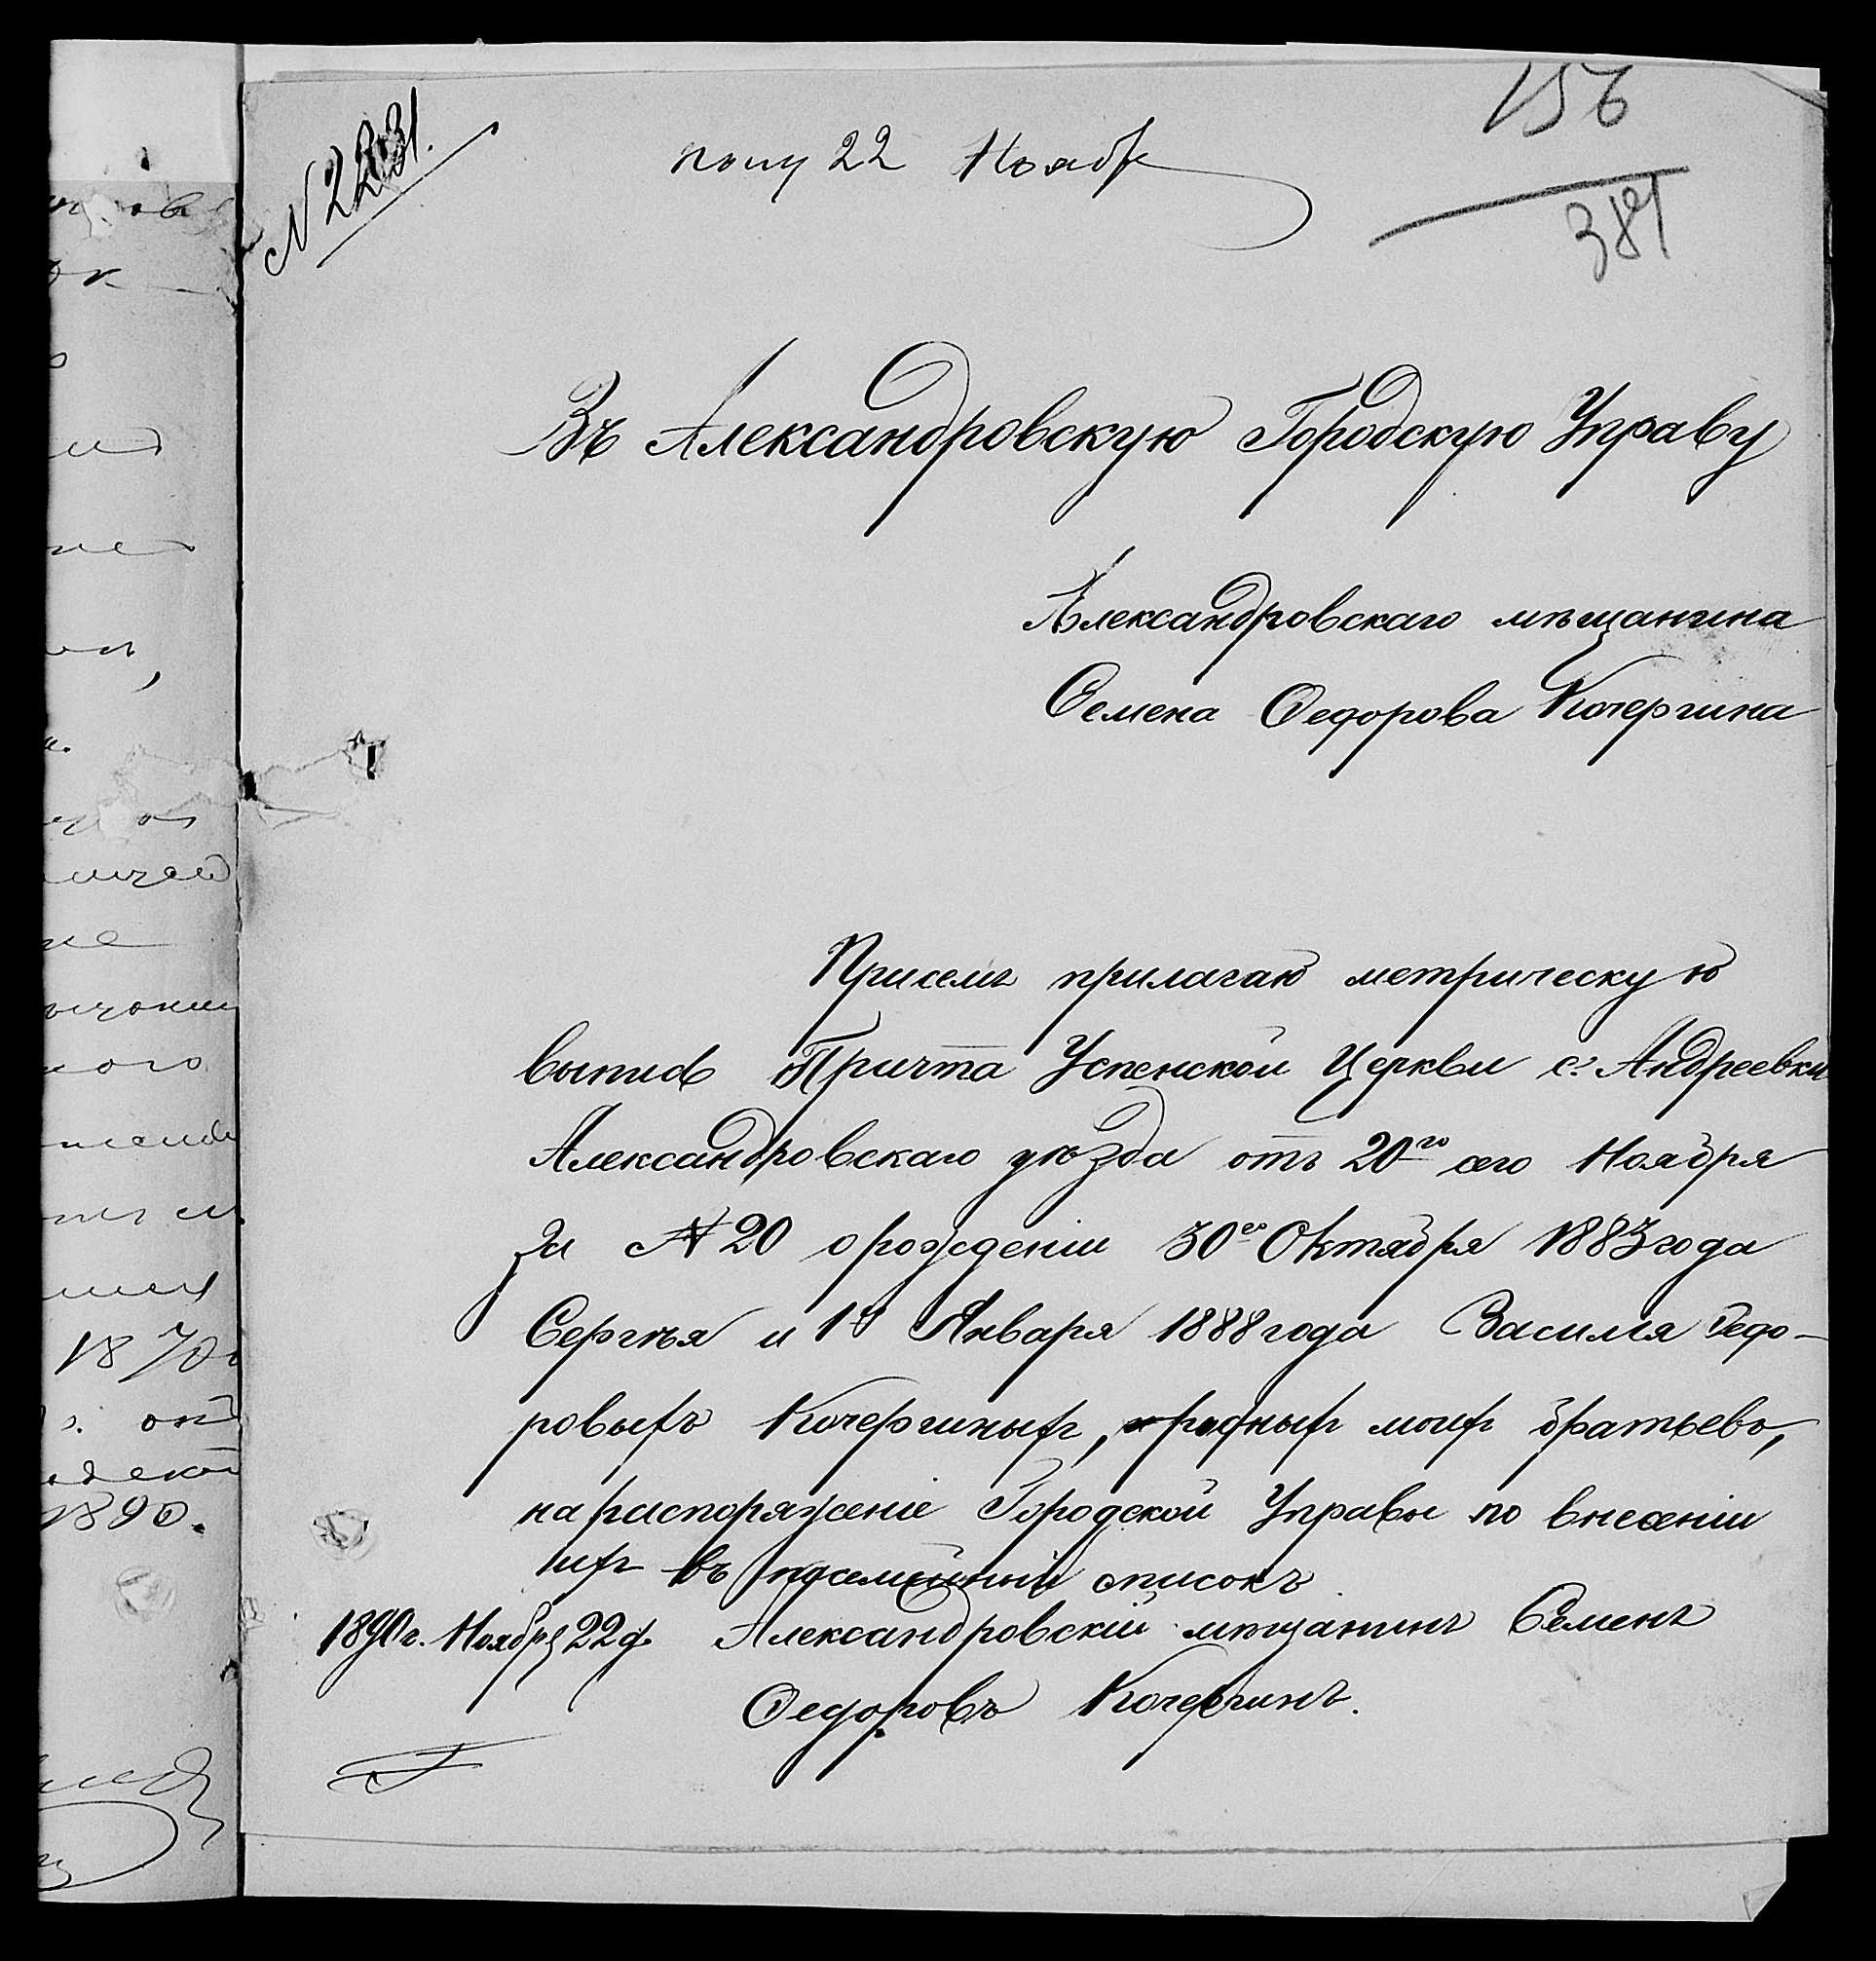 156
полу 22 Нояб
381
Въ Александровскую Городскую Управу
Александровскаго мѣщанина
Семена Федорова Кочергина
Присемъ прилагаю метрическую
выпись Причта Успенской Церкви с. Андреевки
Александровскаго уѣзда отъ 20го сего Ноября
за № 20 о рожденіи 30го Октября 1883 года
Сергѣя и 1го Января 1888 года Василія Федо-
ровыхъ Кочергиныхъ, родныхъ моихъ братьевъ,
на распоряженіе Городской Управы по внесеніи
ихъ въ посемейный списокъ.
1890 г. Ноября 22 д. Александровскій мѣщанинъ Семенъ
Федоровъ Кочергинъ.
1890.